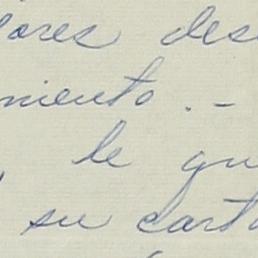 lores des
miento. -
, le qu
su carta